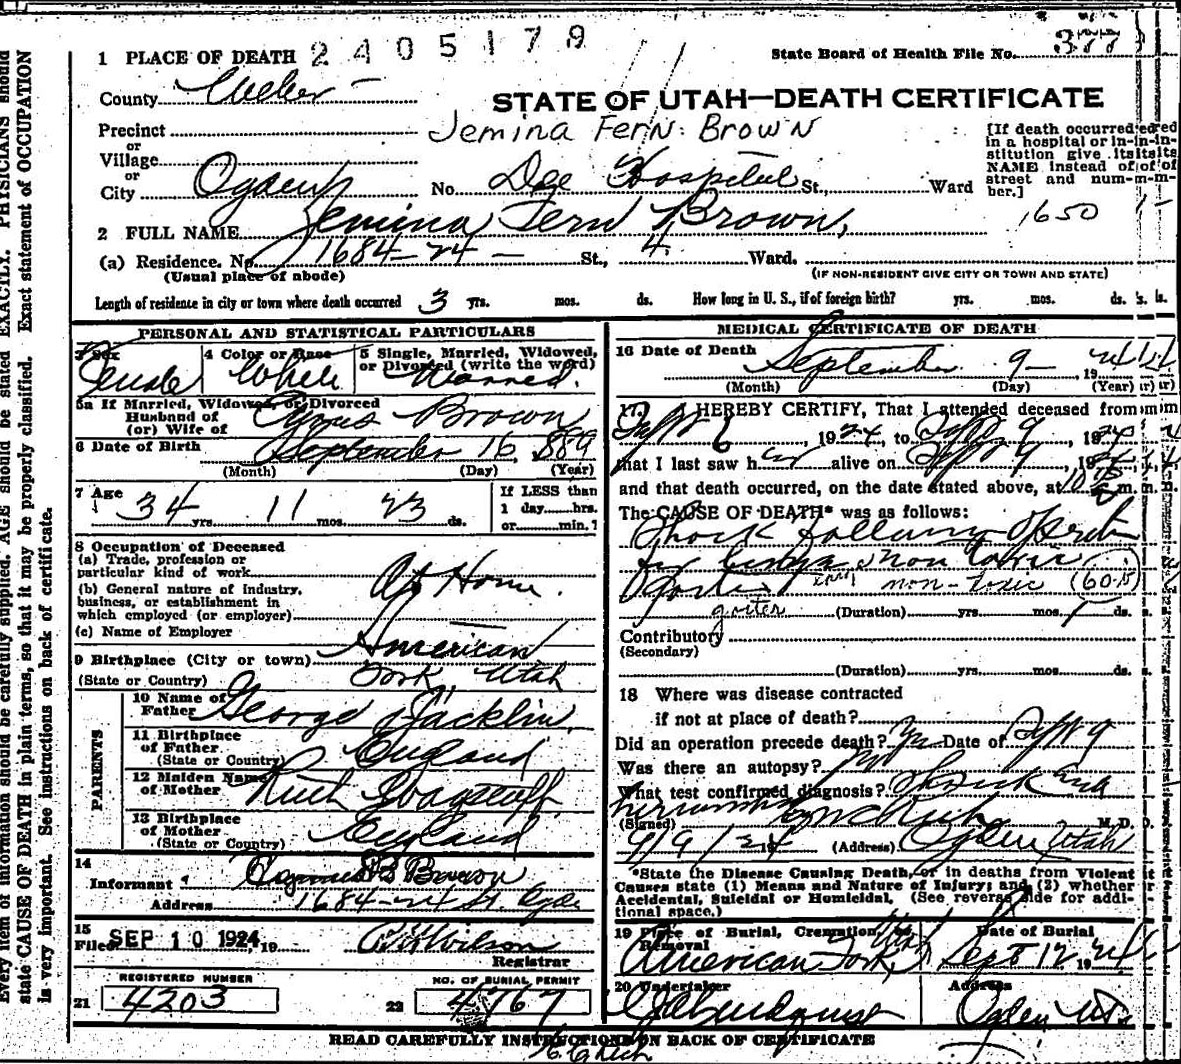 1 PLACE OF DEATH 2405179
State Board of Health File No. 377
County Weber
STATE OF UTAH—DEATH CERTIFICATE
Precinct
Jemina Fern Brown
or
Village
or
City Ogden No. Dee Hospital St., Ward
[If death occurred
in a hospital or in-
stitution give its
NAME instead of
street and num-
ber.]
1650
2 FULL NAME Jemina Fern Brown,
(a) Residence. No. 1684-24 - St., 4 Ward.
(Usual place of abode)
(IF NON-RESIDENT GIVE CITY OR TOWN AND STATE)
Length of residence in city or town where death occurred 3 yrs. mos. ds. How long in U. S., if of foreign birth? yrs. mos. ds.
PERSONAL AND STATISTICAL PARTICULARS
3 Sex
Female
4 Color or Race
White
5 Single, Married, Widowed,
or Divorced (write the word)
Married.
5a If Married, Widowed, or Divorced
Husband of
(or) Wife of Brown
6 Date of Birth September 16, 889
(Month) (Day) (Year)
7 Age
34 yrs. 11 mos. 23 ds.
If LESS than
1 day hrs.
or min.?
8 Occupation of Deceased
(a) Trade, profession or
particular kind of work At Home.
(b) General nature of industry,
business, or establishment in
which employed (or employer)
(c) Name of Employer
9 Birthplace (City or town) American
(State or Country) Fork Utah
PARENTS
10 Name of
Father George Jacklin
11 Birthplace
of Father England
(State or Country)
12 Maiden Name
of Mother Ruth Wagstaff
13 Birthplace
of Mother England
(State or Country)
14
Informant B Brown
Address 1684-24 St. Ogden
15
Filed SEP 10 1924, 19 Wilson
Registrar
REGISTERED NUMBER
21 4203
NO. OF BURIAL PERMIT
22 4767
MEDICAL CERTIFICATE OF DEATH
16 Date of Death September 9 - 1924
(Month) (Day) (Year)
17. I HEREBY CERTIFY, That I attended deceased from
Sept 6, 1924, to Sept 9, 1924
that I last saw her alive on Sept 9, 1924,
and that death occurred, on the date stated above, at 10 m.
The CAUSE OF DEATH* was as follows:
Shock following Operation
for non toxic
Goiter non-toxic (60-b)
goiter (Duration) yrs. mos. 1 ds.
Contributory
(Secondary)
(Duration) yrs. mos. ds.
18 Where was disease contracted
if not at place of death?
Did an operation precede death? Yes Date of Sept 9
Was there an autopsy? No
What test confirmed diagnosis?
(Signed) Rich M. D.
9/9/24 (Address) Ogden Utah
*State the Disease Causing Death, or in deaths from Violent
Causes state (1) Means and Nature of Injury; and (2) whether
Accidental, Suicidal or Homicidal. (See reverse side for addi-
tional space.)
19 Place of Burial, Cremation, or
Removal
American Fork, Utah
Date of Burial
Sept 12 1924
20 Undertaker
Lindquist
Address
Ogden Ut
READ CAREFULLY INSTRUCTIONS ON BACK OF CERTIFICATE
Every item of information should be carefully supplied. AGE should be stated EXACTLY. PHYSICIANS should
state CAUSE OF DEATH in plain terms, so that it may be properly classified. Exact statement of OCCUPATION
is very important. See instructions on back of certificate.